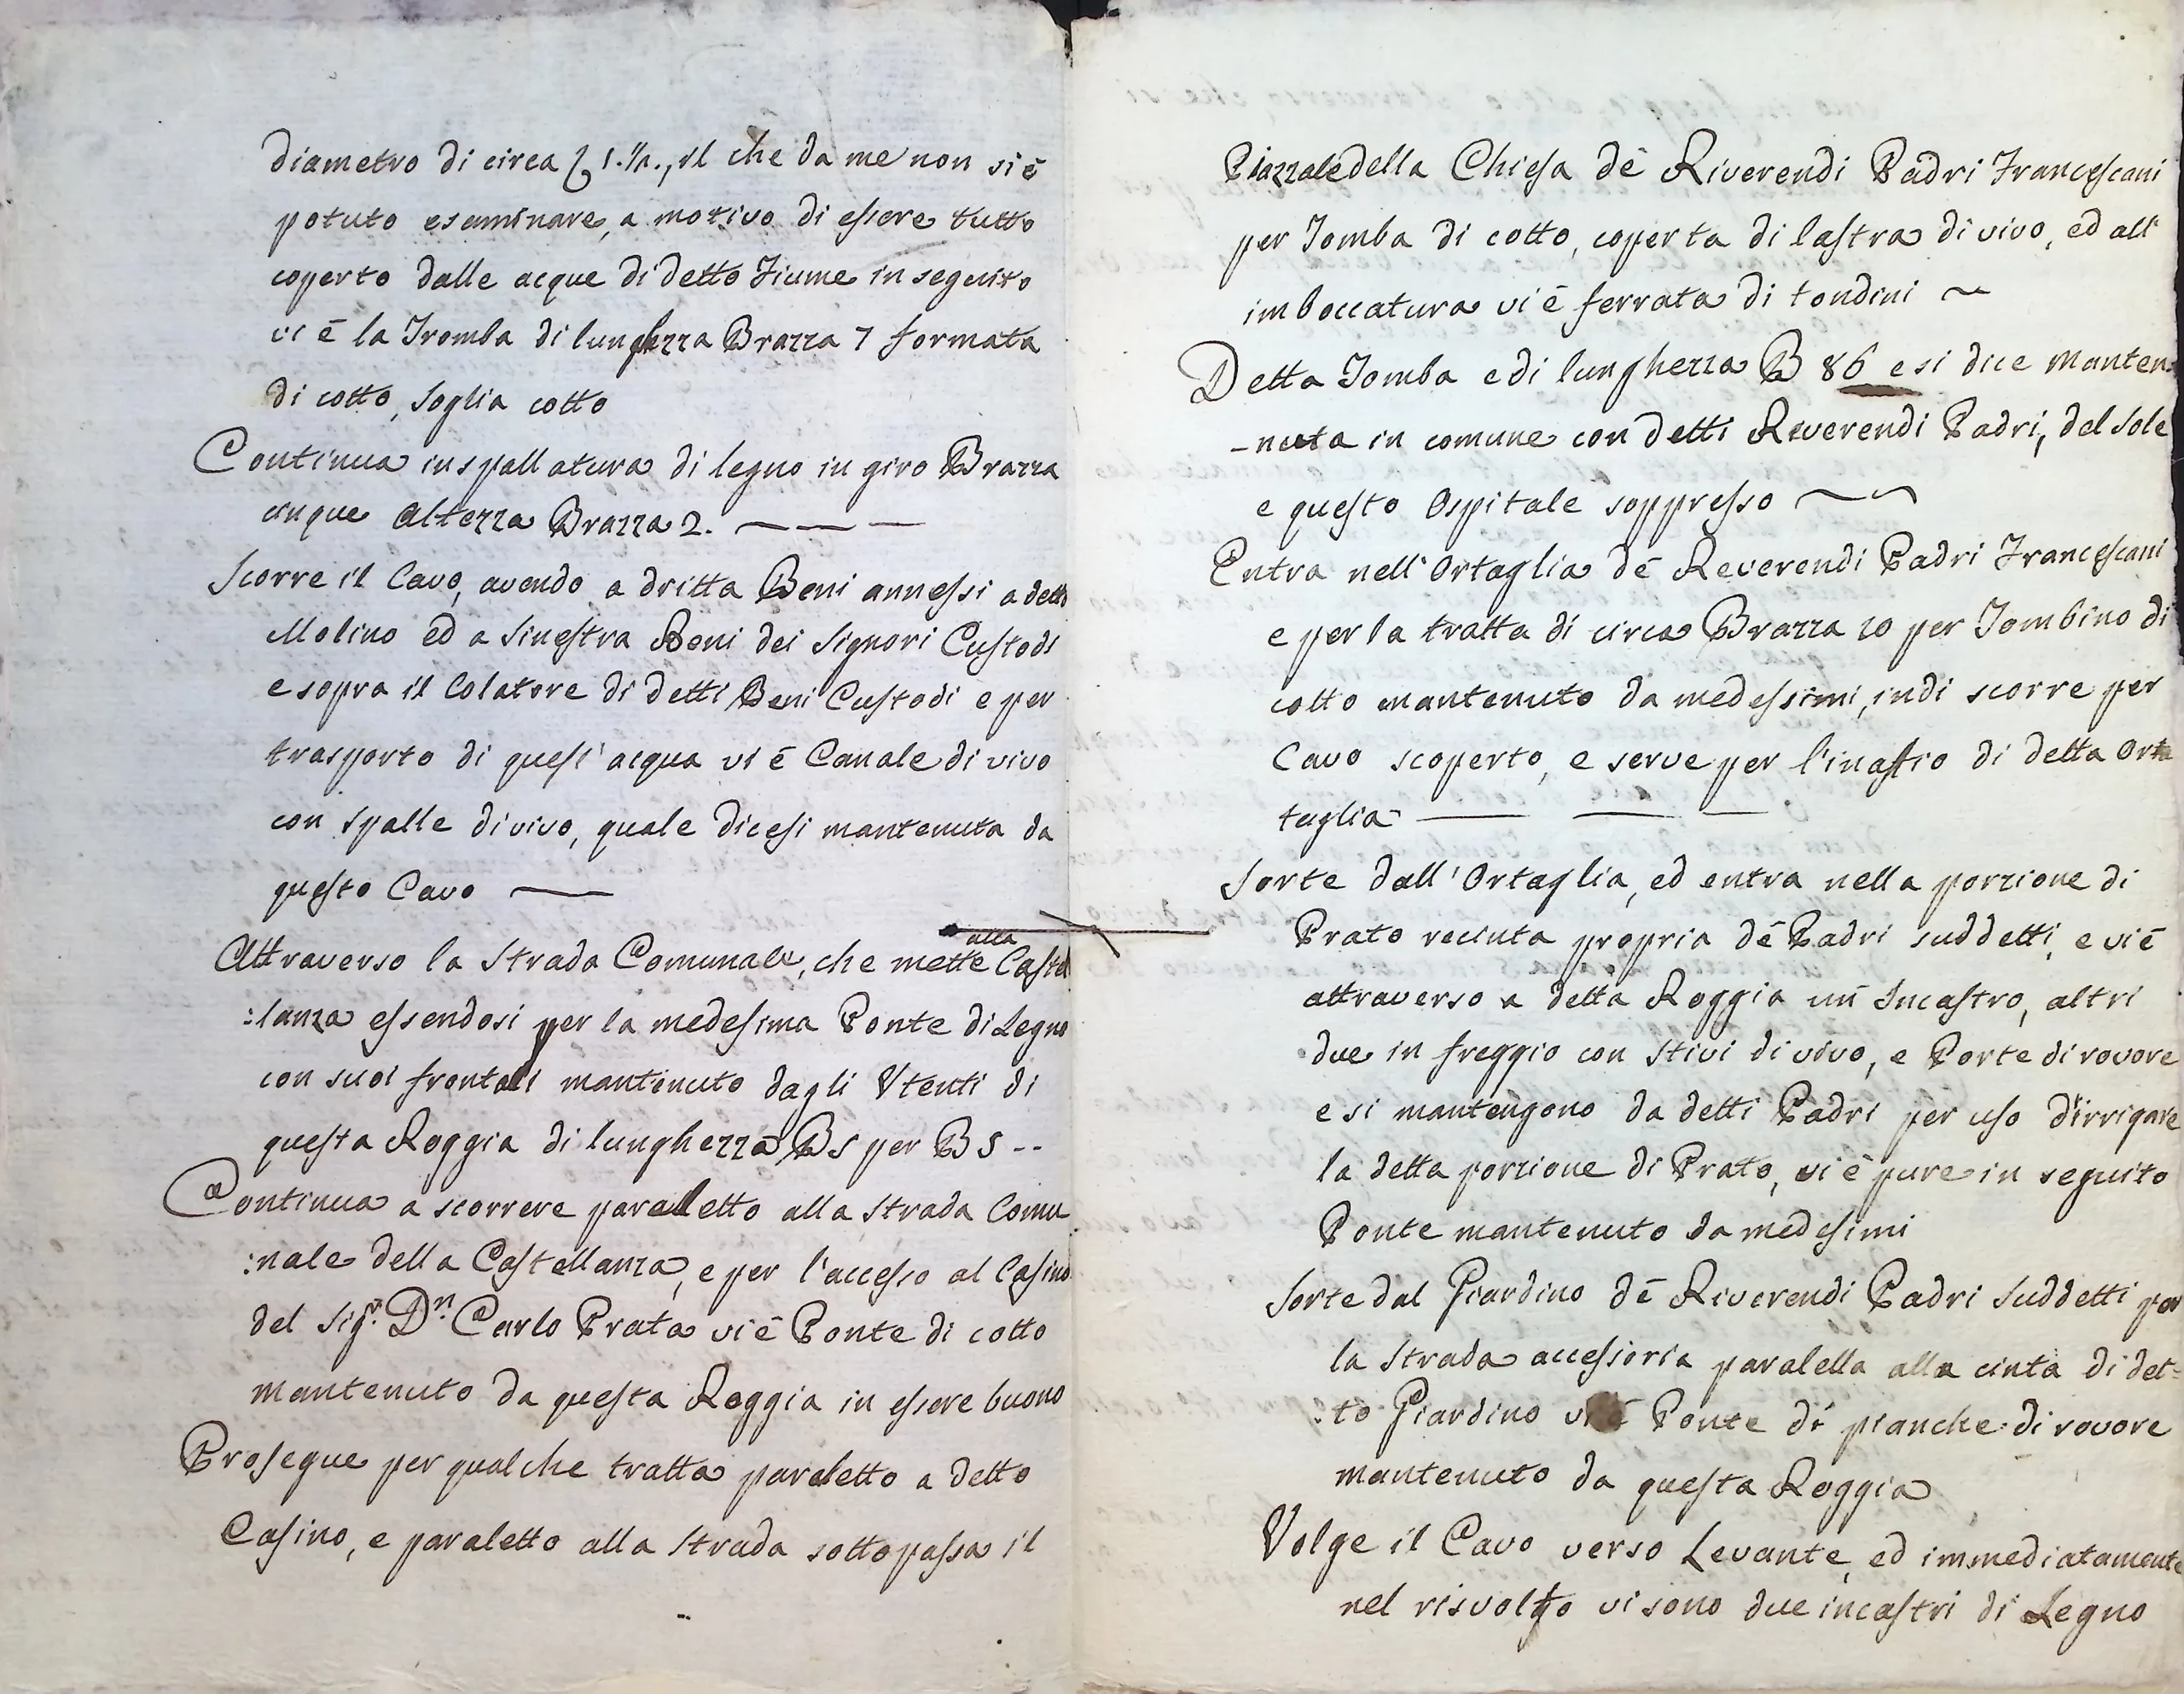 diametro di circa B 1.1/2., il che da me non si è
potuto esaminare, a motivo di essere tutto
coperto dalle acque di detto Fiume in seguito
vi è la Tromba di lunghezza Brazza 7 formata
di cotto, soglia cotto
Continua inspallatura di legno in giro Brazza
cinque altezza Brazza 2. — — —
Scorre il Cavo, avendo a dritta Beni annessi a detto
Molino ed a sinestra Beni dei Signori Custodi
e sopra il Colatore di detti Beni Custodi e per
trasporto di quest'acqua vi è Canale di vivo
con spalle di vivo, quale dicesi mantenuta da
questo Cavo —
Attraverso la Strada Comunale, che mette alla Castel
:lanza essendosi per la medesima Ponte di Legno
con suoi frontali mantenuto dagli Utenti di
questa Roggia di lunghezza B 5 per B 5 --
Continua a scorrere paraletto alla Strada Comu
:nale della Castellanza, e per l'accesso al Casino
del Sig.r D.n Carlo Prata vi è Ponte di cotto
mantenuto da questa Roggia in essere buono
Prosegue per qualche tratta paraletto a detto
Casino, e paraletto alla Strada sottopassa il
Piazzale della Chiesa dè Riverendi Padri Francescani
per Tomba di cotto, coperta di lastra di vivo, ed all'
imboccatura vi è ferrata di tondini ~
Detta Tomba e di lunghezza B 86 e si dice manten
-nuta in comune con detti Reverendi Padri, del Sole
e questo Ospitale soppresso ~ ~
Entra nell'Ortaglia dè Reverendi Padri Francescani
e per la tratta di circa Brazza 10 per Tombino di
cotto mantenuto da medessimi, indi scorre per
Cavo scoperto, e serve per l'inaffio di detta Orta
taglia — — —
Sorte dall'Ortaglia, ed entra nella porzione di
Prato recinta propria dè Padri suddetti, e vi è
attraverso a detta Roggia un Incastro, altri
due in freggio con Stivi di vivo, e Porte di rovore
e si mantengono da detti Padri per uso d'irrigare
la detta porzione di Prato, vi è pure in seguito
Ponte mantenuto da medesimi
Sorte dal Giardino dè Riverendi Padri Suddetti per
la Strada accessoria paralella alla cinta di det-
:to Giardino vi è Ponte di pianche di rovore
mantenuto da questa Roggia
Volge il Cavo verso Levante, ed immediatamente
nel risvolto vi sono due incastri di Legno